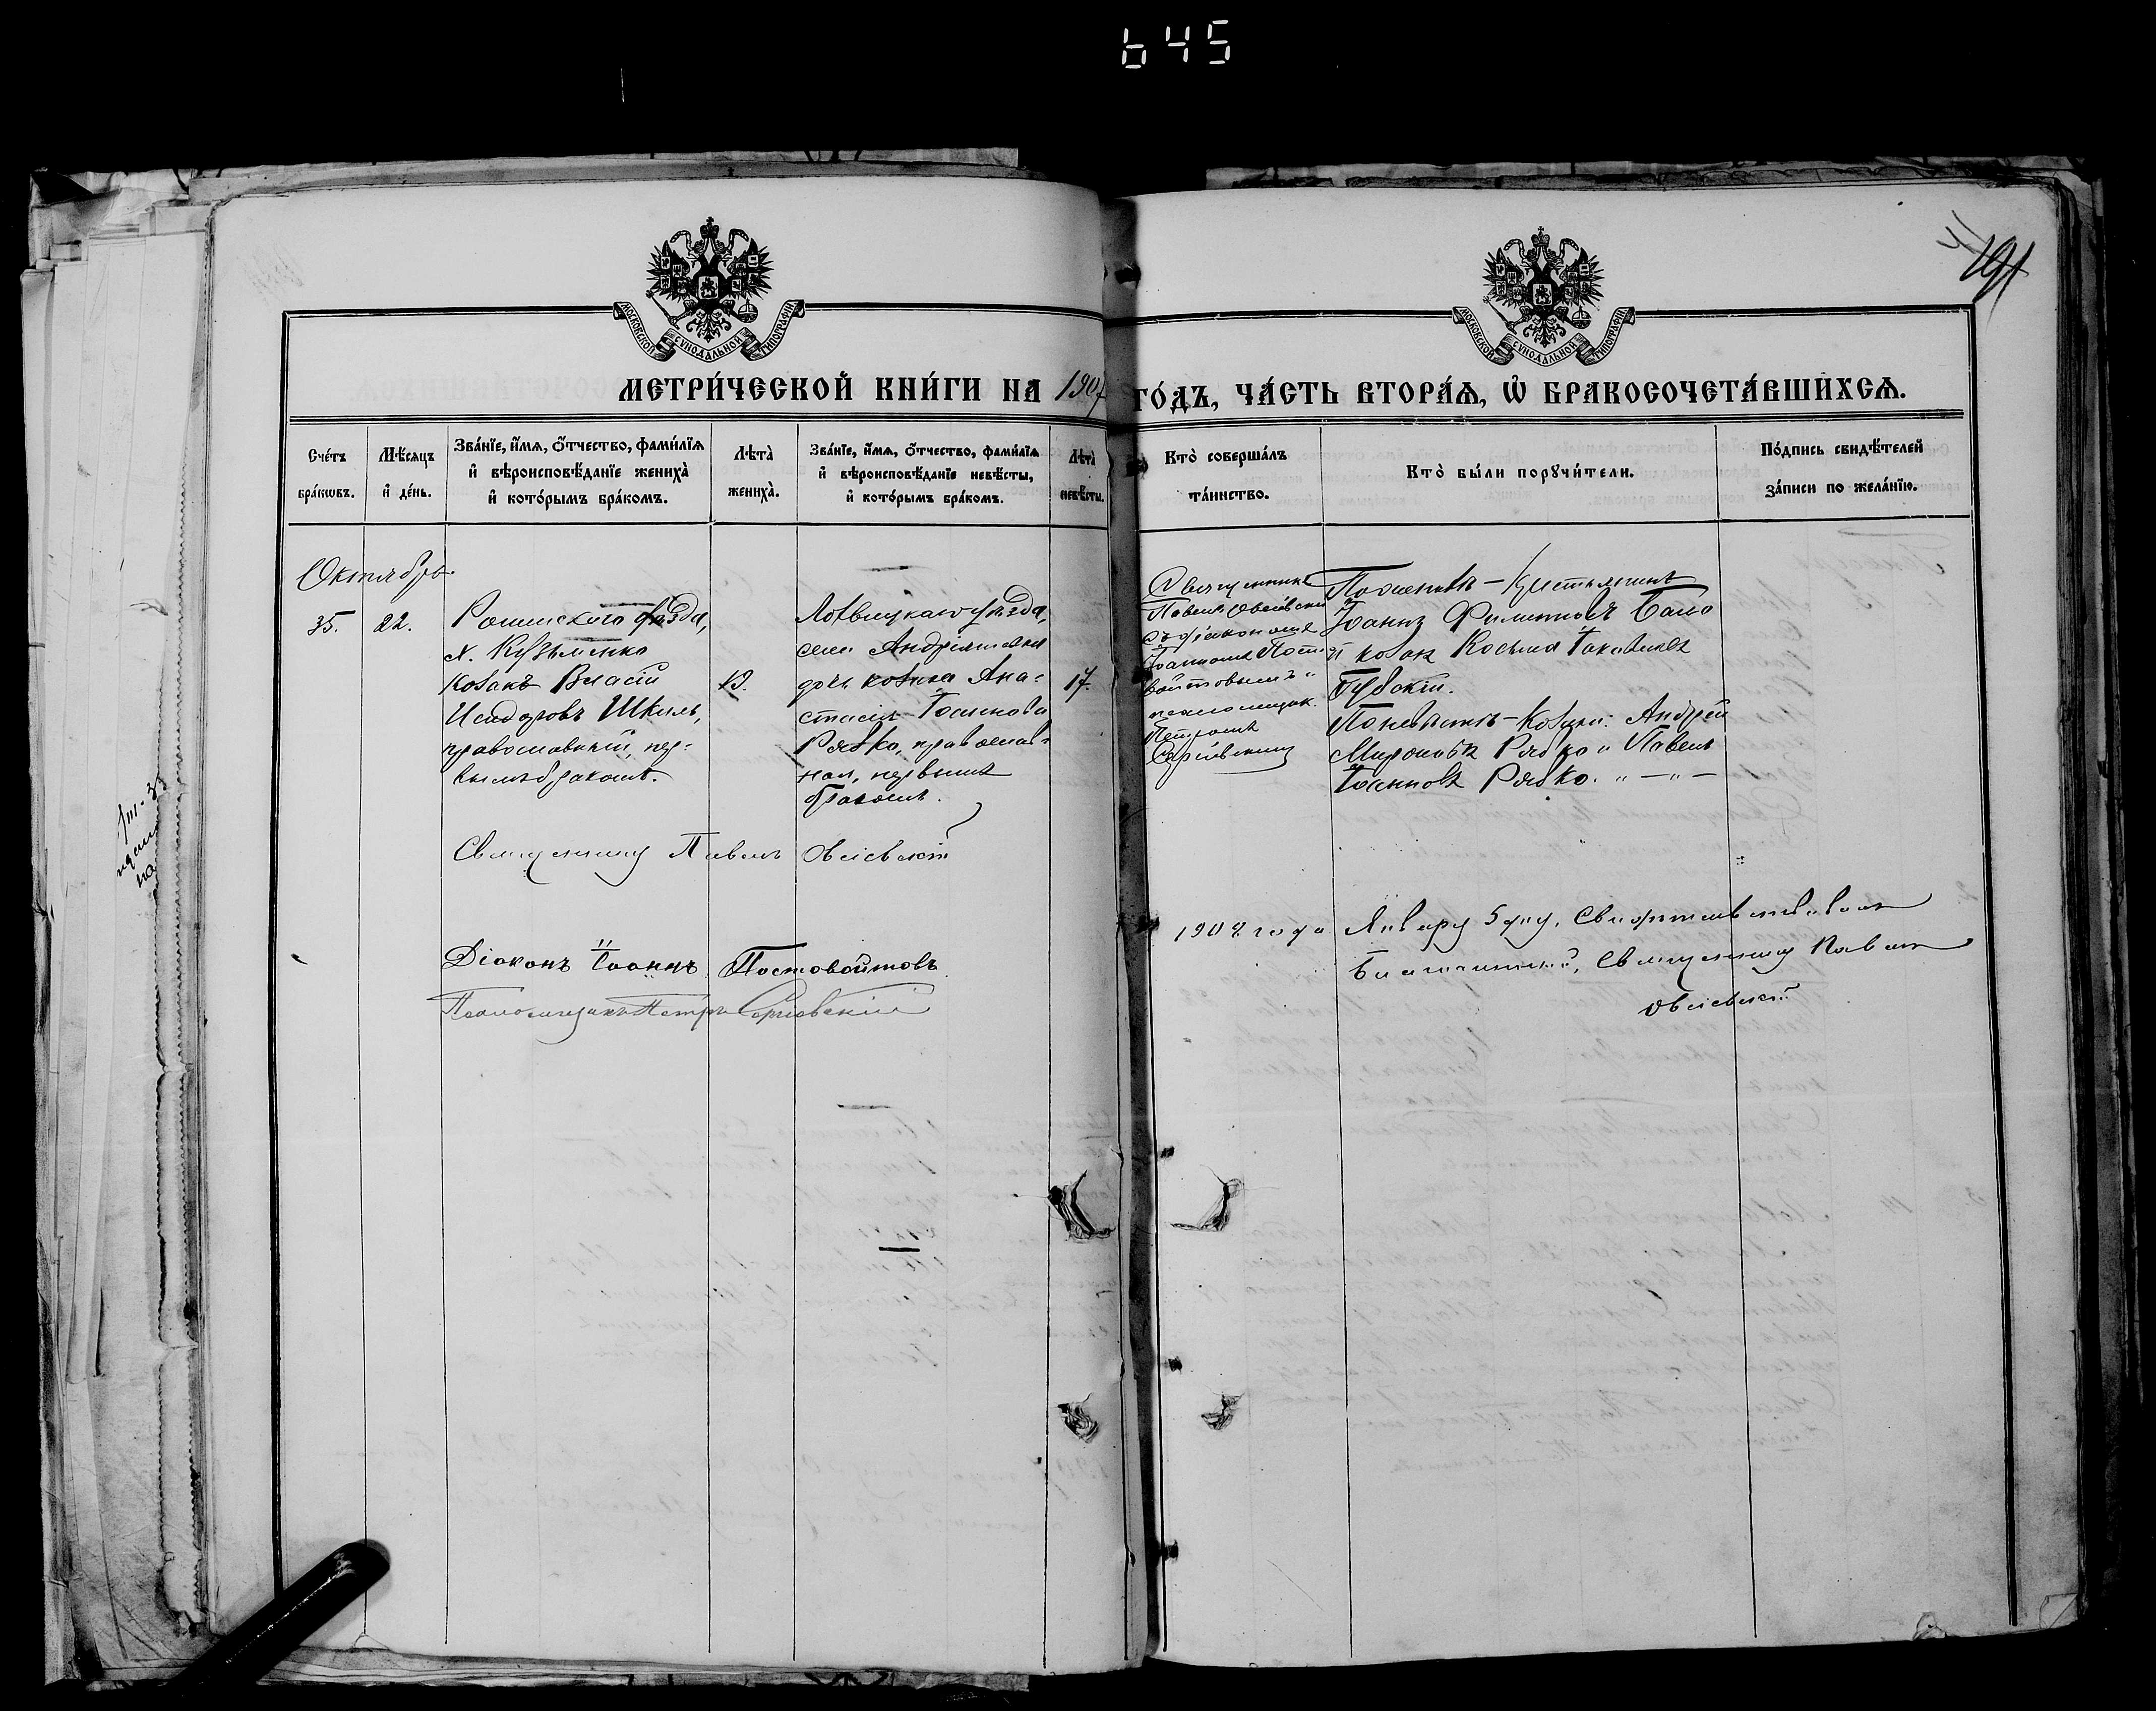 645
191
МОСКОВСКОЙ СѴНОДАЛЬНОЙ ТИПОГРАФІИ
МОСКОВСКОЙ СѴНОДАЛЬНОЙ ТИПОГРАФІИ
МЕТРИ́ЧЕСКОЙ КНИ́ГИ НА 1907 ГО́ДЪ, ЧА́СТЬ ВТОРА́Я, Ѡ҆ БРАКОСОЧЕТА́ВШИХСЯ.
Сче́тъ
бра́кѡвъ.
Мѣ́сяцъ
и҆ де́нь.
Зва́нїе, и҆́мя, ѻ҆́тчество, фами́лїя
и҆ вѣроисповѣ́данїе жениха̀
и҆ кото́рымъ бра́комъ.
Лѣта̀
жениха̀.
Зва́нїе, и҆́мя, ѻ҆́тчество, фами́лїя
и҆ вѣроисповѣ́данїе невѣ́сты,
и҆ кото́рымъ бра́комъ.
Лѣта̀
невѣ́сты.
Кто̀ соверша́лъ
та́инство.
Кто̀ бы́ли порꙋчи́тели.
По́дпись свидѣ́телей
за́писи по жела́нїю.
Октябрь
35.
22.
Роменскаго уѣзда,
х. Кузьменко
козакъ Власій
Исидоровъ Шкиль,
православный, пер-
вымъ бракомъ.
Лохвицкаго уѣзда,
села Андріяшевки
дочь козака Ана-
стасія Іоаннова
Рябко, православ-
ная, первымъ
бракомъ.
17.
Священникъ
Павелъ
съ діакономъ
Іоанномъ Посто-
войтовымъ и
псаломщик.
Петромъ
Сергіевскимъ
По женихѣ – крестьянинъ
Іоаннъ Филиповъ
и козакъ Косьма Іаковлевъ
По невѣстѣ – козаки: Андрей
Мироновъ Рябко и Павелъ
Іоанновъ Рябко. " — " —
Священникъ Павелъ
Діаконъ Іоаннъ Постовойтовъ
Псаломщикъ Петръ Сергіевскій
1908 года Января 5 дня, свидѣтельствовалъ
Благочинный, священникъ Павелъ